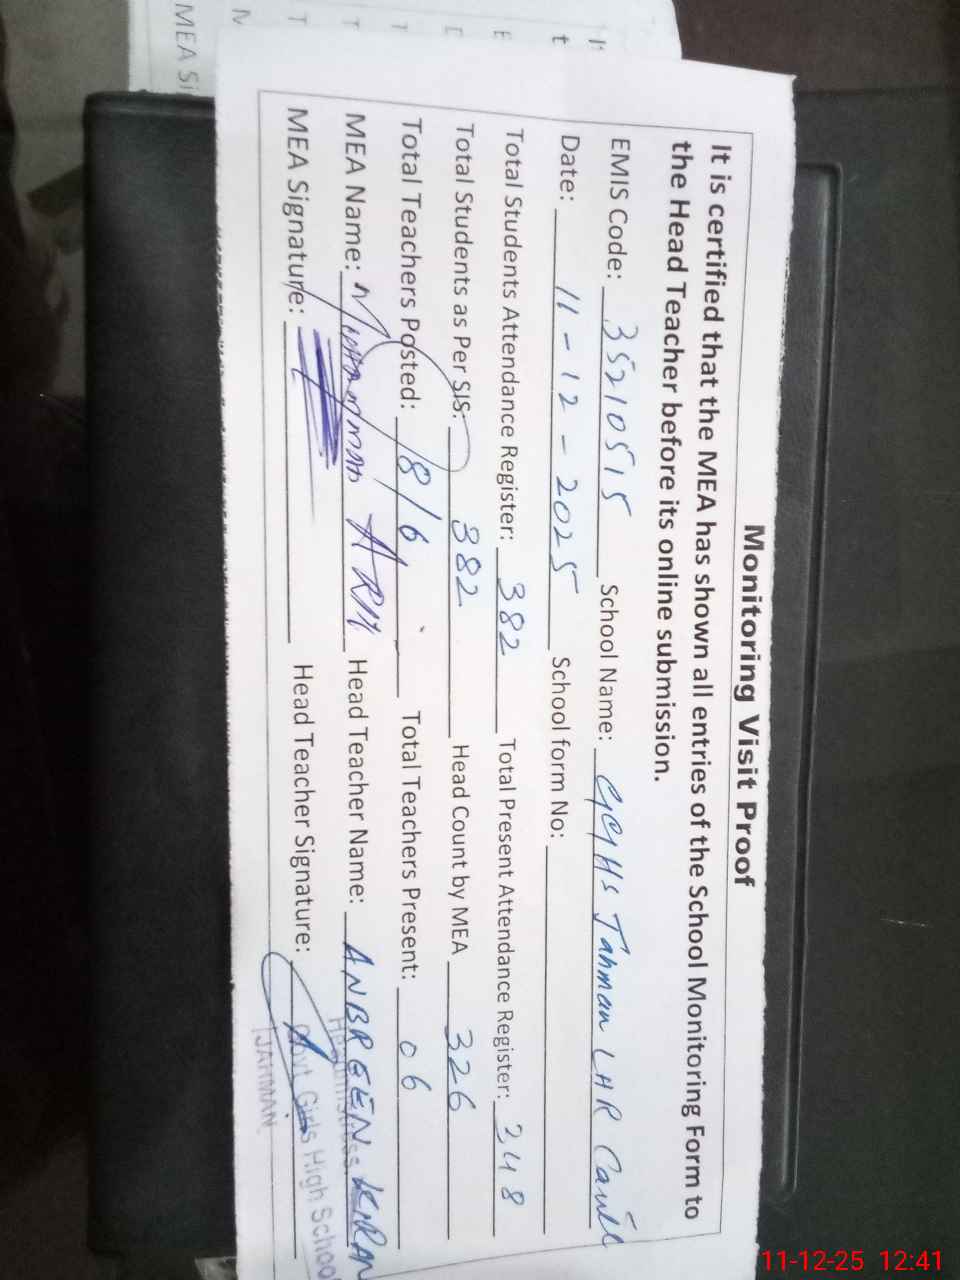 Monitoring Visit Proof
It is certified that the MEA has shown all entries of the School Monitoring Form to
the Head Teacher before its online submission.
EMIS Code: 35210515 School Name: GGHS Jahman LHR Cantt
Date: 11-12-2025 School form No:
Total Students Attendance Register: 382 Total Present Attendance Register: 348
Total Students as Per SIS: 382 Head Count by MEA 326
Total Teachers Posted: 18/6 Total Teachers Present: 06
MEA Name: Head Teacher Name: ANBREEN KIRAN
MEA Signature: Head Teacher Signature:
Headmistress
Govt Girls High School
JAHMAN
MEA Si
11-12-25 12:41